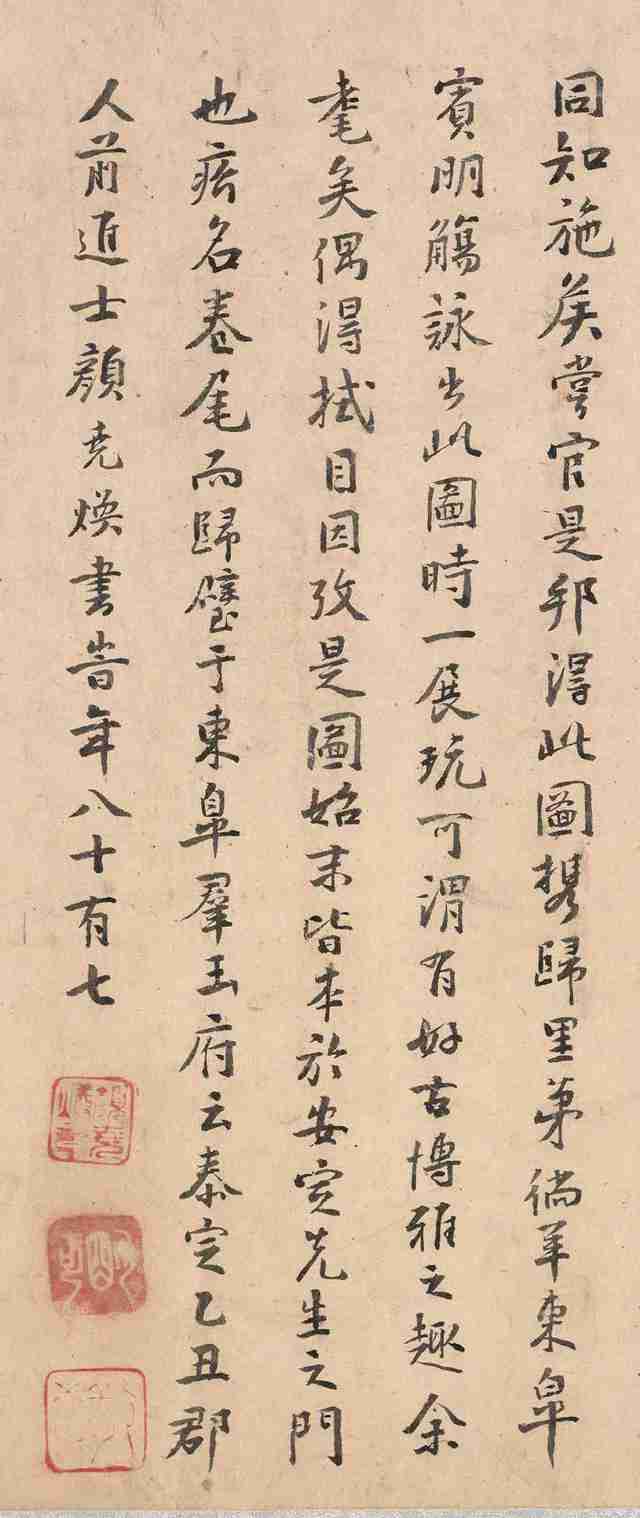 同知施矦嘗官是邦得此圖携歸里第徜羊東皐
賓明觴詠出此圖時一展玩可謂有好古博雅之趣余
耄矣偶得拭目因攷是圖始末皆本於安定先生之門
也痦名卷尾而歸璧于東皐羣玉府云泰定乙丑郡
人前進士顏堯煥書旹年八十有七